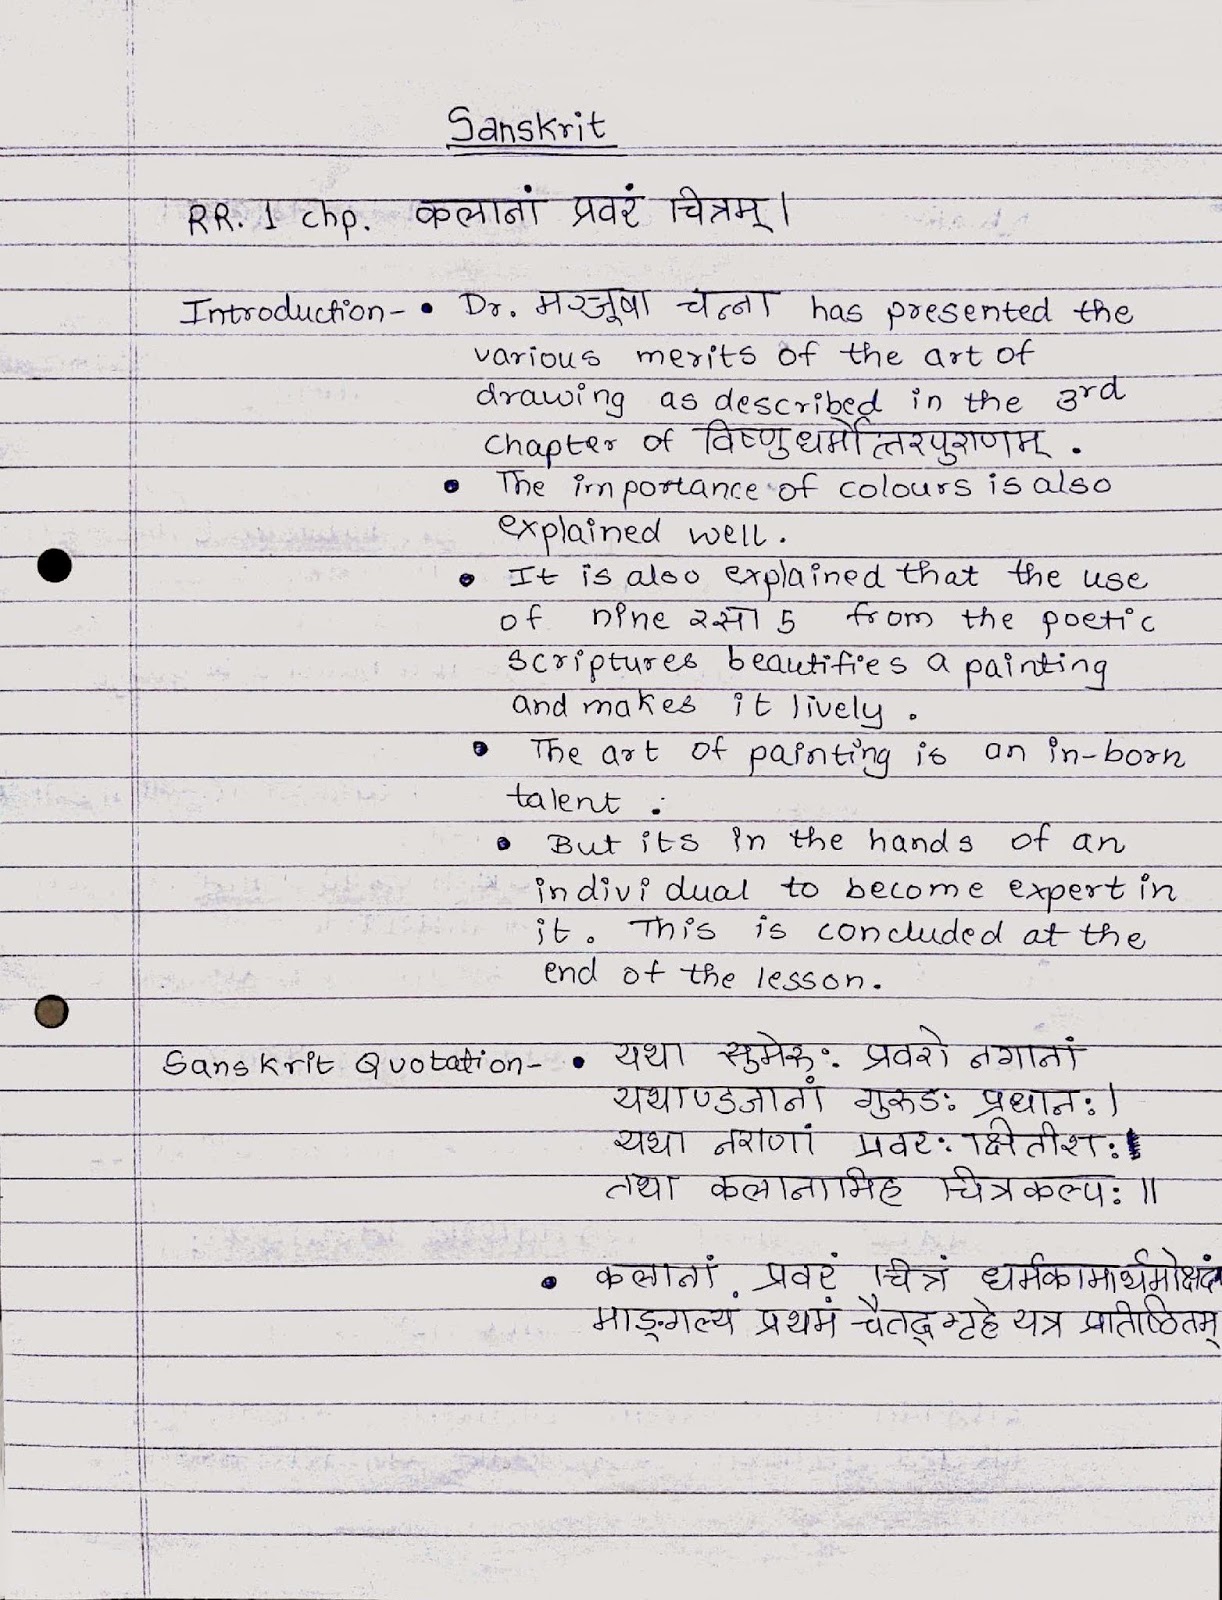 Sanskrit
RR. 1 chp. कलानां प्रवरं चित्रम्।
Introduction- • Dr. मञ्जूषा चन्ना has presented the
various merits of the art of
drawing as described in the 3rd
chapter of विष्णुधर्मोत्तरपुराणम् .
• The importance of colours is also
explained well.
• It is also explained that the use
of nine रसा s from the poetic
scriptures beautifies a painting
and makes it lively.
• The art of painting is an in-born
talent .
• But its in the hands of an
individual to become expert in
it. This is concluded at the
end of the lesson.
Sanskrit Quotation- • यथा सुमेरुः प्रवरो नगानां
यथाण्डजानां गुरुडः प्रधानः।
यथा नराणां प्रवरः क्षितीशः
तथा कलानामिह चित्रकल्पः॥
• कलानां प्रवरं चित्रं धर्मकामार्थमोक्षदं
माङ्गल्यं प्रथमं चैतद् गृहे यत्र प्रतिष्ठितम्